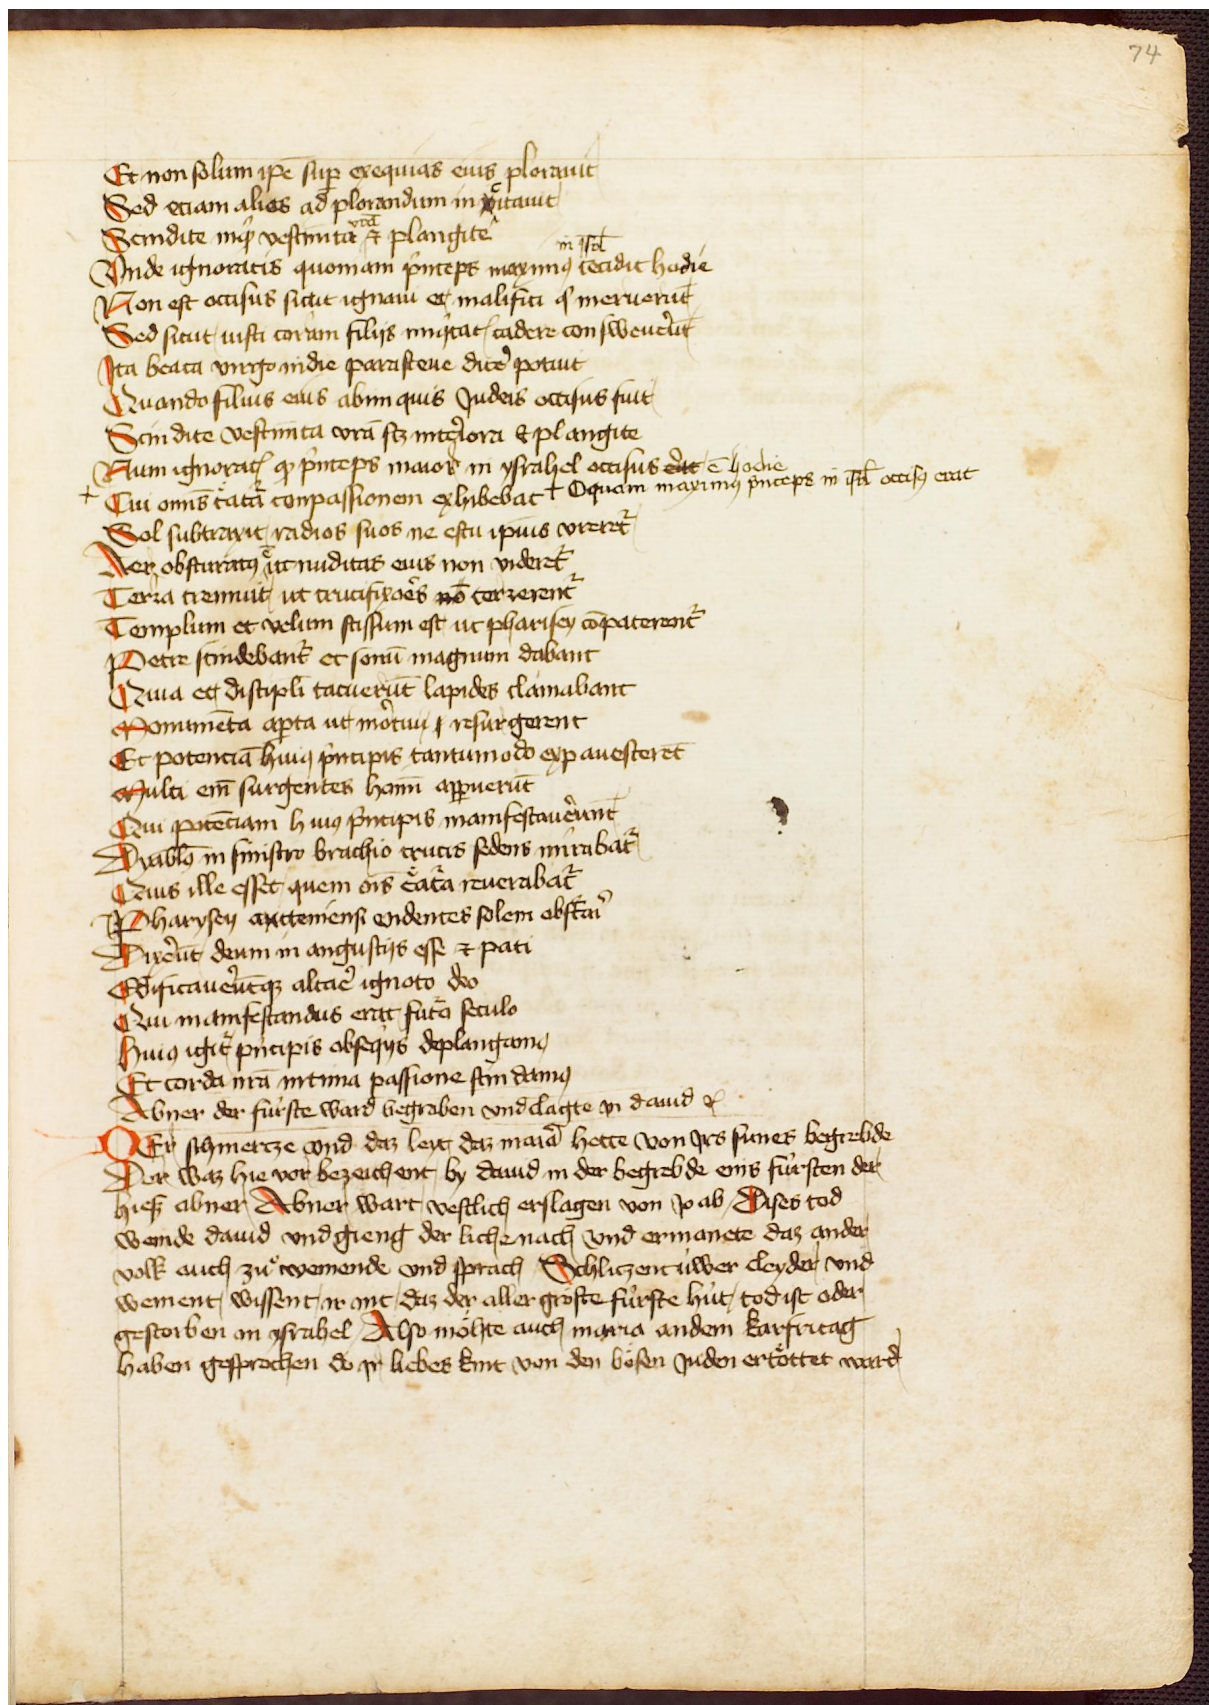 74
Et non solum ip̄e suꝑ exequias eius plorauit
Sed eciam alios ad plorandum inuitauit
Scindite inq̇ vestimēta vr̄a ⁊ plangite
Vnde ignoratis quoniam ṗnceps maximꝰ in isrl̄ cecidit hodie
Non est occisus sicut ignaui et malifici q̇ meruerūt
Sed sicut iusti coram filijs iniq̇tat cadere consweuerūt
Ita beata virgo in die parasteue dicē potuit
Quando filius eius ab iniquis Judeis occisus fuit
Scindite vestimēta vrā scz interiora et plangite
Num ignoratꝭ ꝙ ṗnceps maior in ysrahel occisus ē hodie
+ O quam maximꝰ ṗnceps in isrl̄ occisꝰ erat
+ Cui omīs c̄atūa conpassionem exhibebat
Sol subtraxit radios suos ne estu ipius vreret᷑
Aer obscuratꝰ ē ut nuditas eius non videret᷑
Terra tremuit ut crucifixoēs terrerent᷑
Templum et velum scissum est ut pharisey cōpaterent᷑
Petre scindebant᷑ et sonū magnum dabant
Quia et discipli tacuerūt lapides clamabant
Monumēta aꝑta ut mōrtui resurgerent
Et potenciā huiꝰ ṗncipis tantummodo expauescerēt
Multi em̄ surgentes homī apparuerūt
Qui potēciam huiꝰ ṗncipis manifestauerunt
Dyablꝰ in sinistro brachio crucis sedens mirabat᷑
Quis ille esset quem oīs c̄atūa reuerabat᷑
Pharysey attenienses videntes solem obscāri
Dixerūt deum in angustijs esse ⁊ pati
Edificauerūtqꝫ altaē ignoto deo
Qui manifestandus erat futō seculo
Huiꝰ igit᷑ ṗncipis obseq̇ijs deplangamꝰ
Et corda nrā intima passione scindamꝰ
Abner der fürste ward begraben vnd clagte in dauid ꝛc
Der schmertze vnd daz leyt daz maria hette von irs sunes begrebde
Der waz hie vor bezeichent by dauid in der begrebde eins fürsten der
hiesz abner Abner wart vestlich erslagen von Joab Dises tod
weinde dauid vnd gieng der liche nach vnd ermanete daz ander
volk auch zů weinende vnd sprach Schliczent ůwer cleyder vnd
weinent wissent ir nit daz der aller gröste fürste hüt tod ist oder
gestorben in ysrahel Also möhte auch maria an dem karfritag
haben gesprochen do ir liebes kint von den bösen Juden ertöttet ward